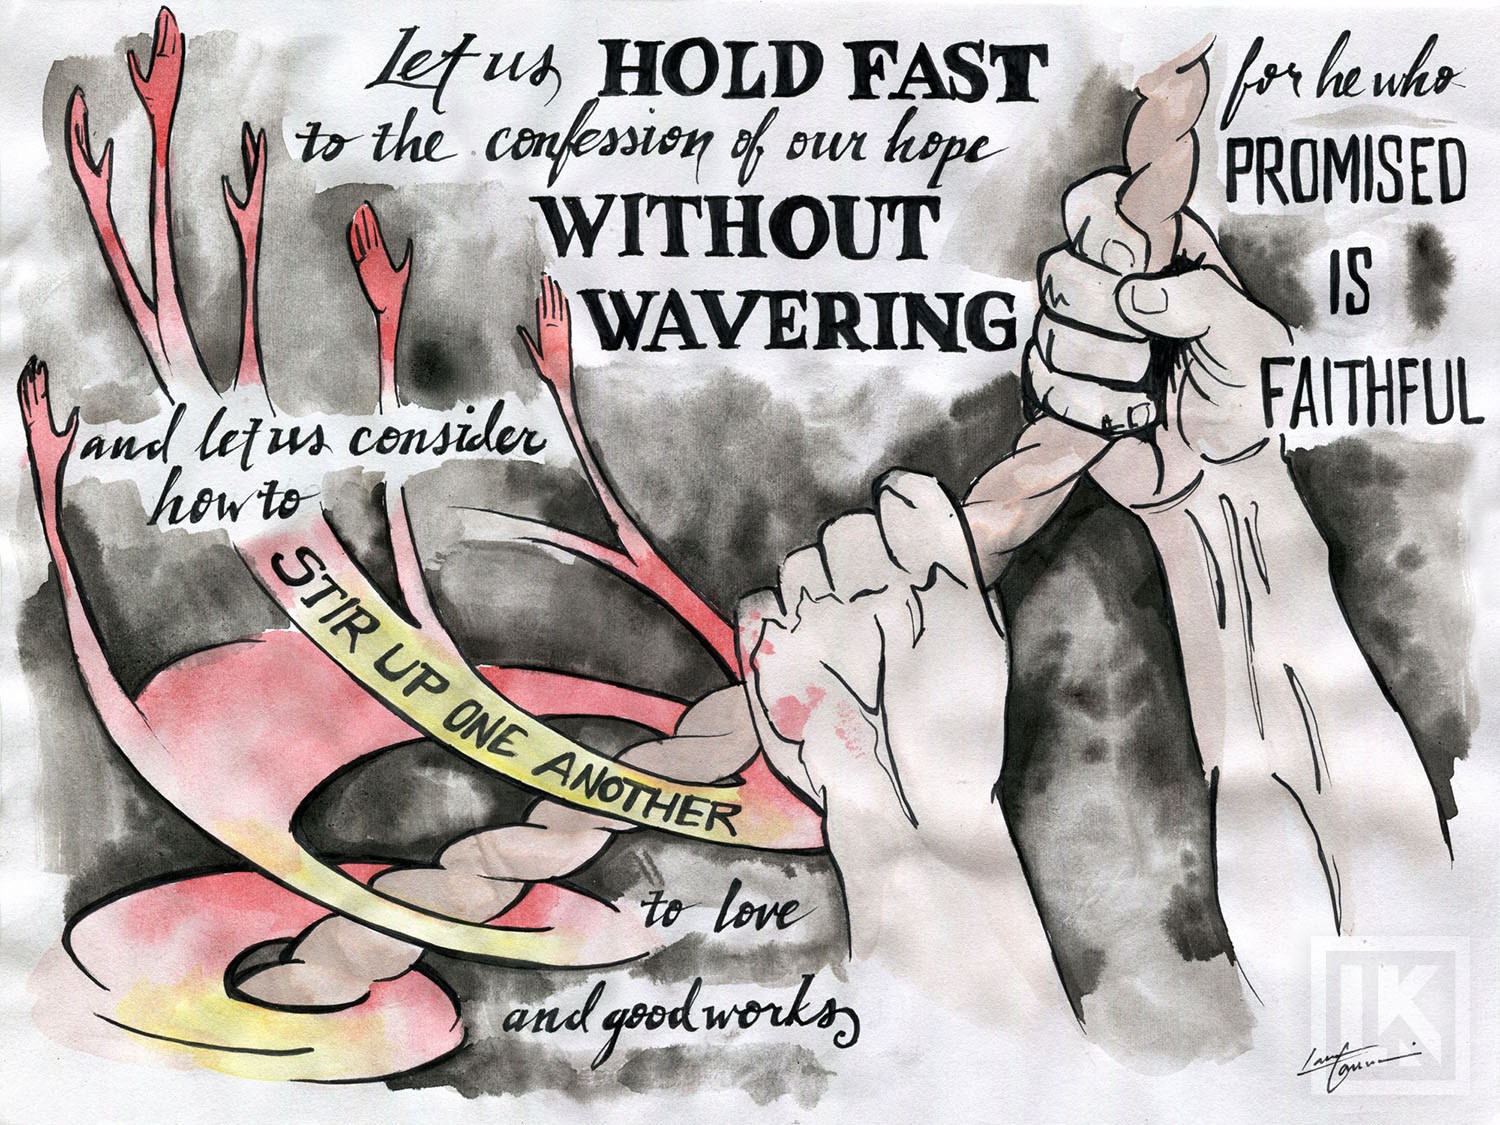 Let us HOLD FAST
to the confession of our hope
WITHOUT
WAVERING
for he who
PROMISED
IS
FAITHFUL
and let us consider
how to
STIR UP ONE ANOTHER
to love
and good works,
LK